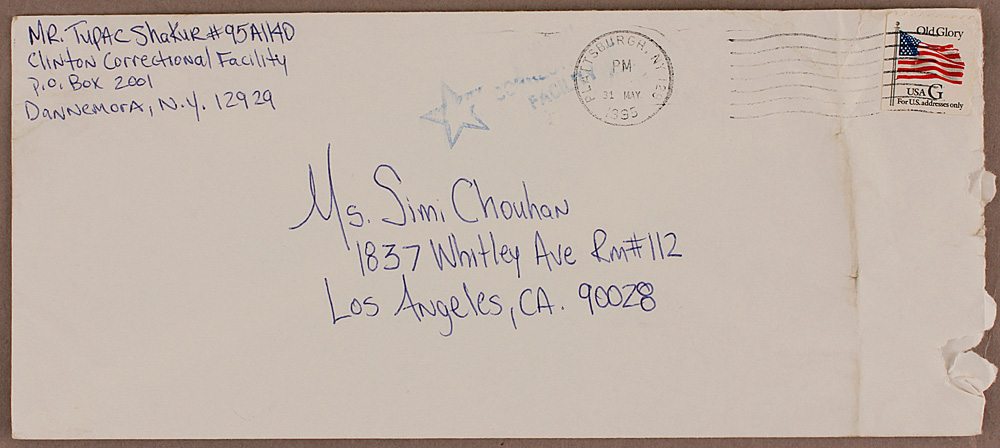 MR. TUPAC SHAKUR #95A1140
Clinton Correctional Facility
P.O. Box 2001
Dannemora, N.Y. 12929
PLATTSBURGH, NY
PM
31 MAY
1995
Old Glory
USA G
For U.S. addresses only
Ms. Simi Chouhan
1837 Whitley Ave Rm#112
Los Angeles, CA. 90028